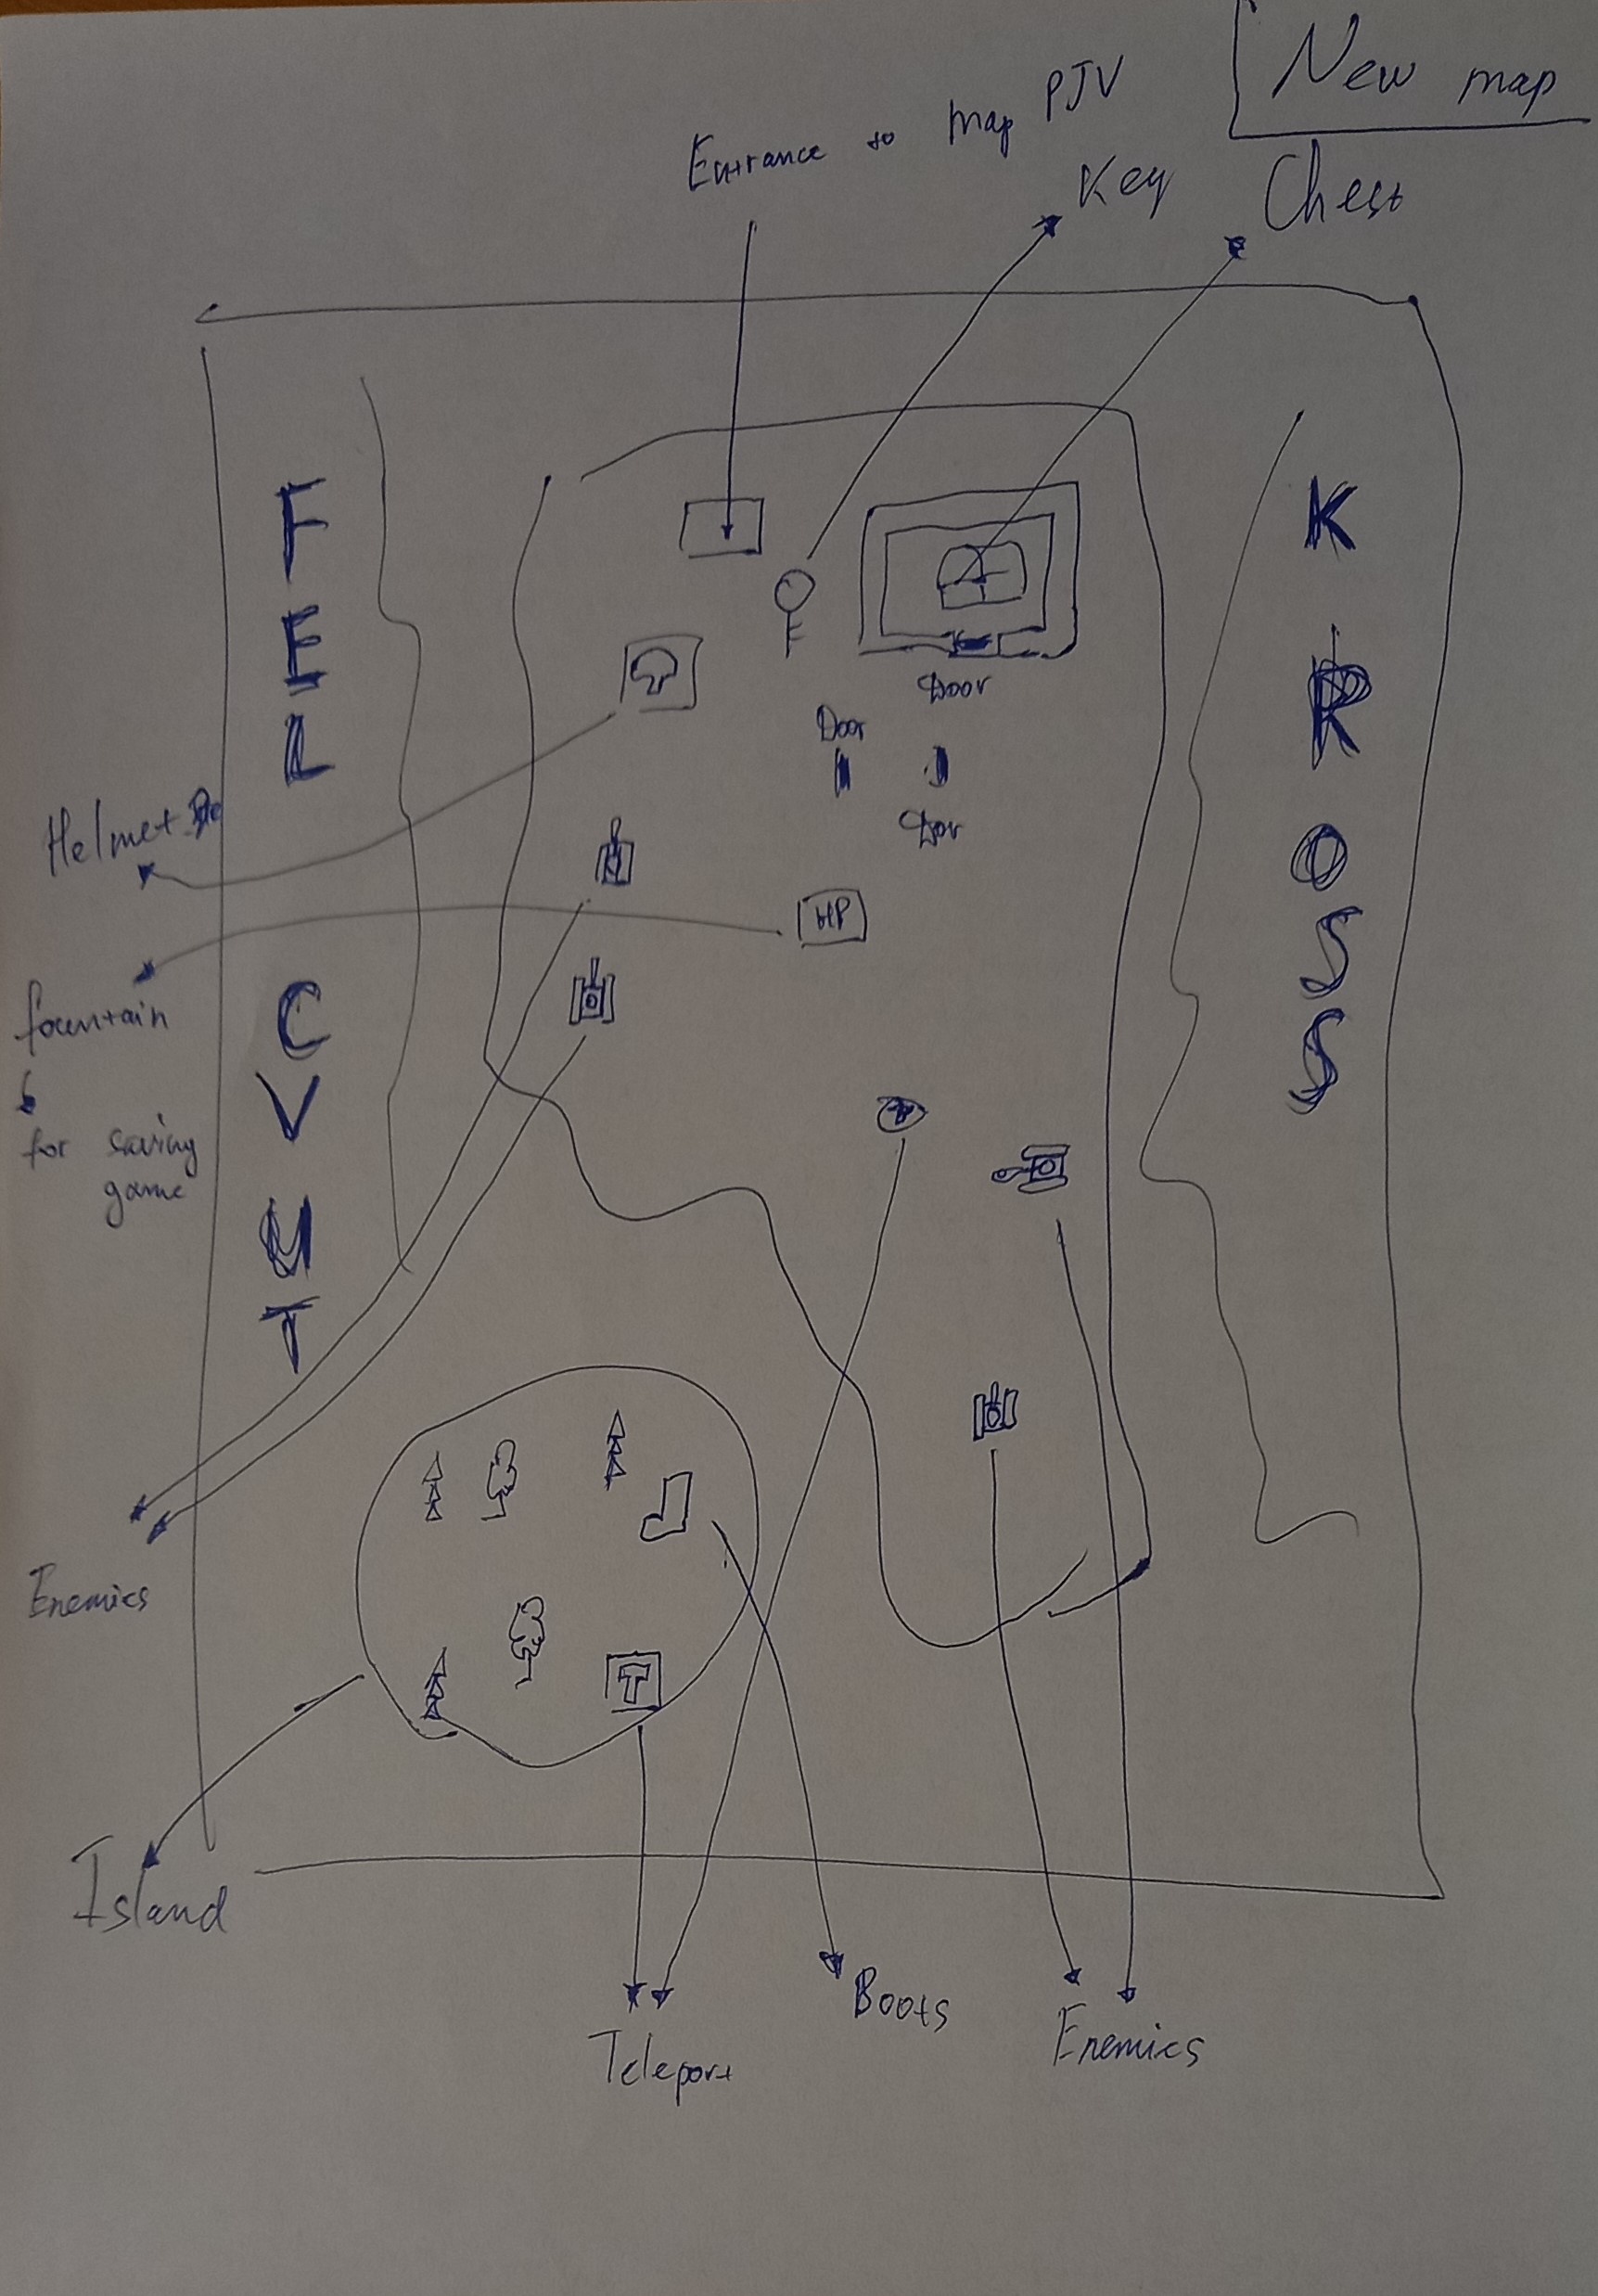 New map
Entrance to map PJV
Key
Chest
FEL
CVUT
KROSS
Door
Door
Dor
Helmet
HP
fountain
for saving
game
Enemies
T
Island
Boots
Teleport
Enemies